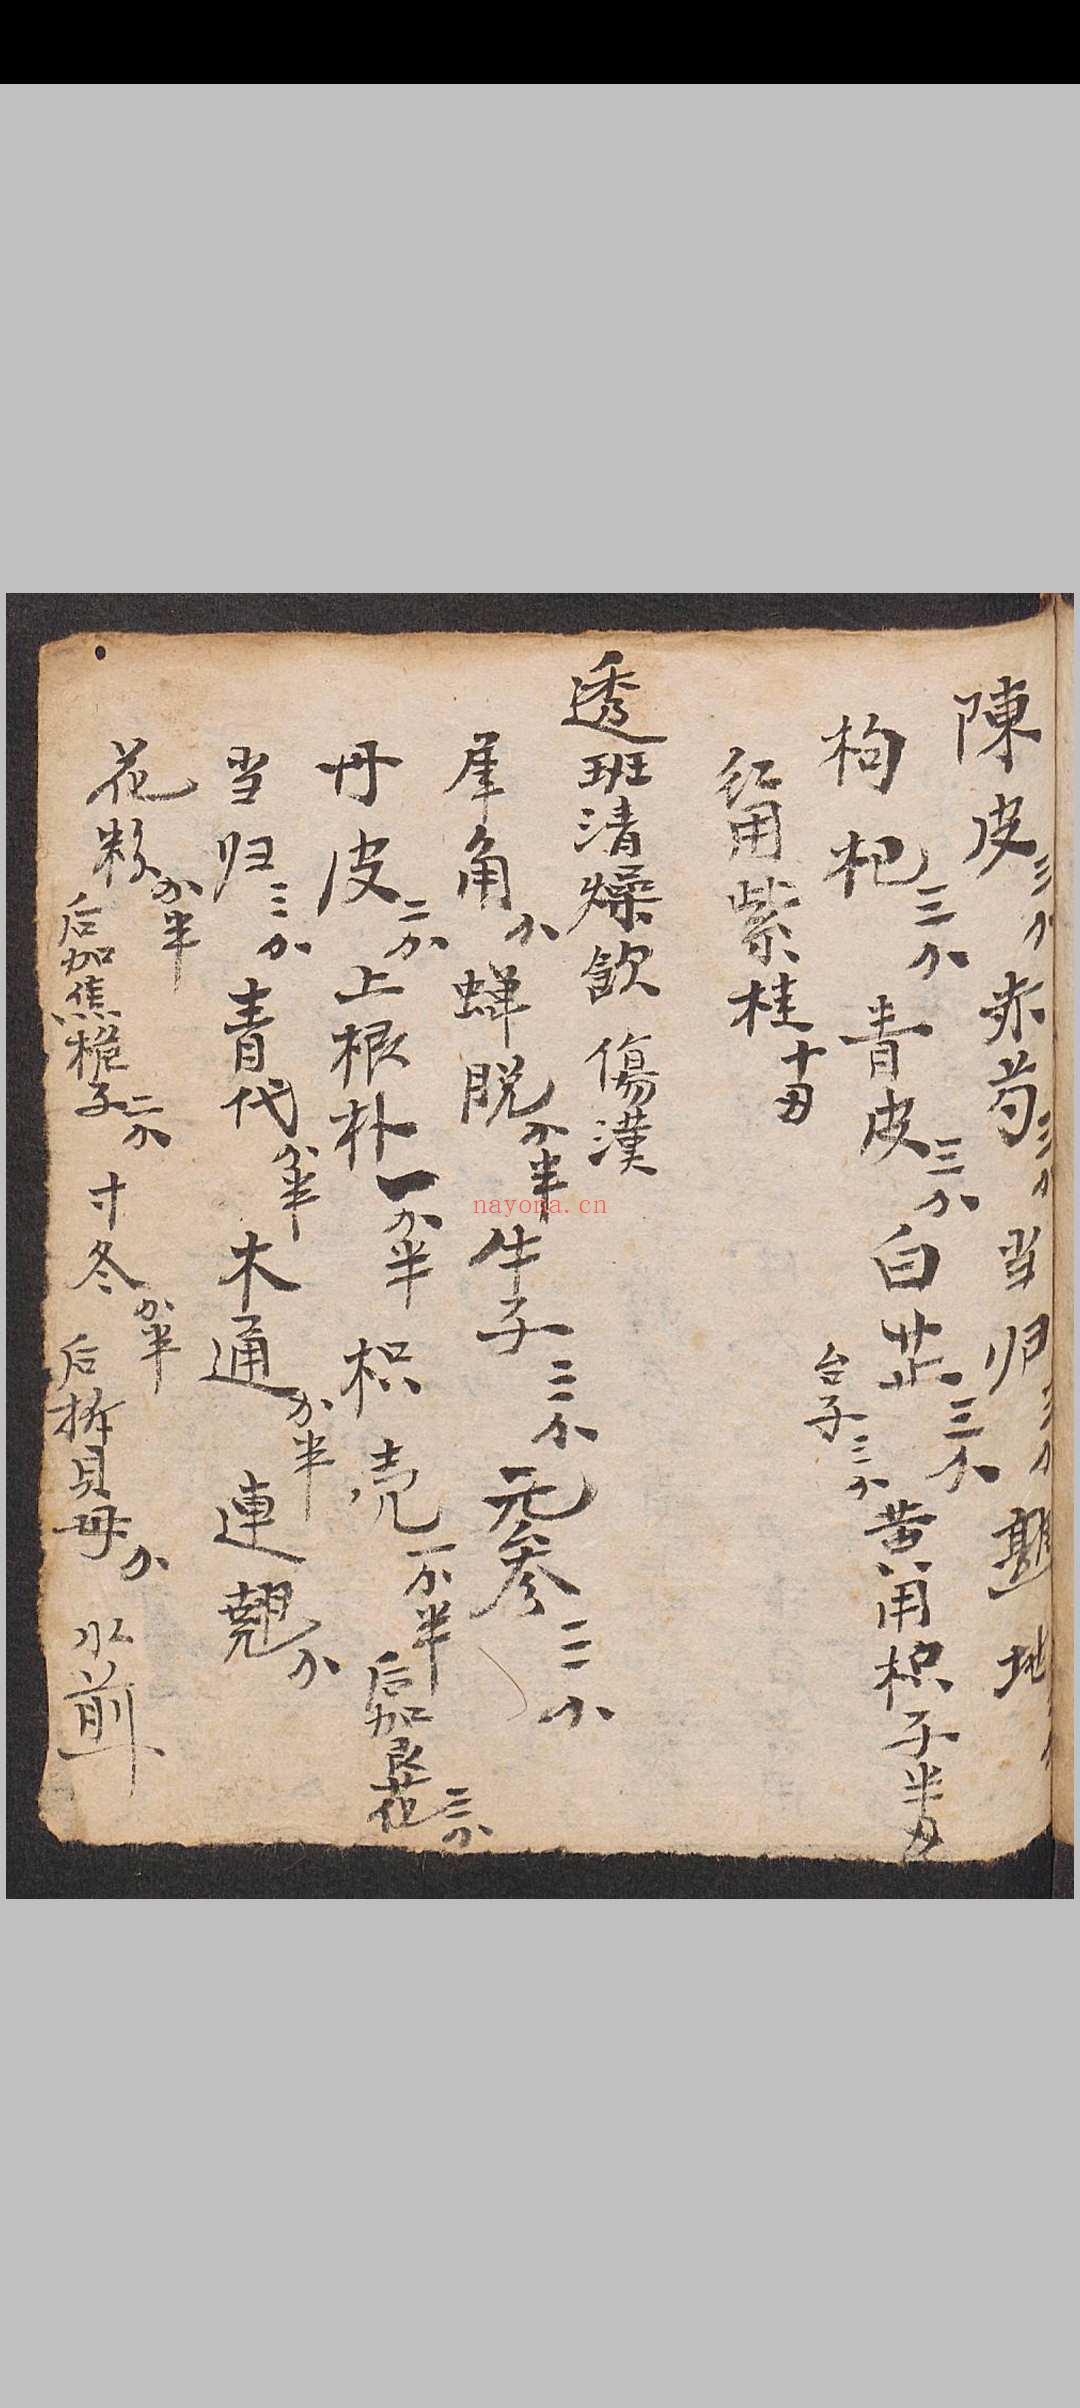 陳皮三分 赤芍三分 当归三分 熟地
枸杞三分 青皮三分 白芷三分 台子三分 黄用枳子半刃
紅用紫桂十刃
透班清燥飲 傷漢
犀角分 蟬脱分半 牛子三分 元參三分
丹皮二分 上根朴一分半 枳壳一分半 后加良花三分
当归三分 青代分半 木通分半 連翹分
花粉分半 后加焦桅子二分 寸冬分半 后拆貝母分 水煎
nayona.cn